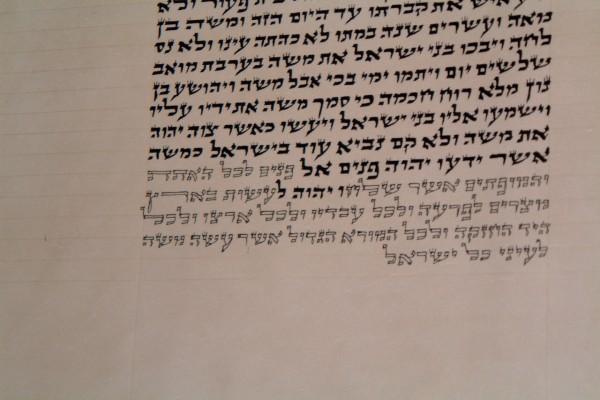 פעור ולא
איש את קברתו עד היום הזה ומשה בן
מאה ועשרים שנה במתו לא כהתה עינו ולא נס
לחה ויבכו בני ישראל את משה בערבת מואב
שלשים יום ויתמו ימי בכי אבל משה ויהושע בן
נון מלא רוח חכמה כי סמך משה את ידיו עליו
וישמעו אליו בני ישראל ויעשו כאשר צוה יהוה
את משה ולא קם נביא עוד בישראל כמשה
אשר ידעו יהוה פנים אל פנים לכל האתת
והמופתים אשר שלחו יהוה לעשות בארץ
מצרים לפרעה ולכל עבדיו ולכל ארצו ולכל
היד החזקה ולכל המורא הגדול אשר עשה משה
לעיני כל ישראל